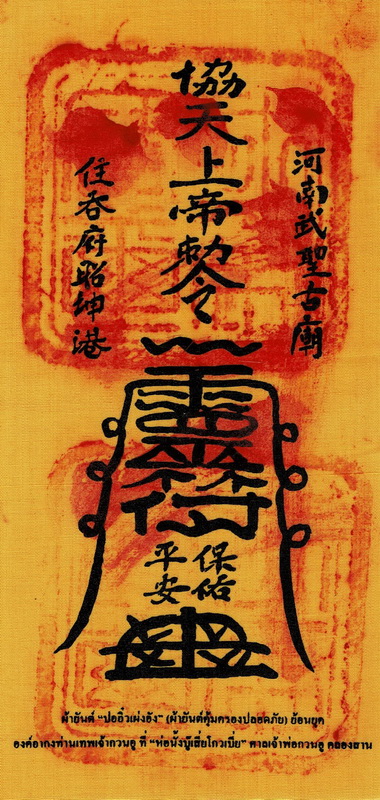 協天上帝勅令
河南武聖古廟
住吞府昭坤港
靈符
保佑
平安
ผ้ายันต์ “ปออิ่วเผ่งอัง” (ผ้ายันต์คุ้มครองปลอดภัย) ย้อนยุค
องค์อากงท่านเทพเจ้ากวนอู ที่ “ห่อนั้งบู๊เสี่ยโกวเบี่ย” ศาลเจ้าพ่อกวนอู คลองสาน